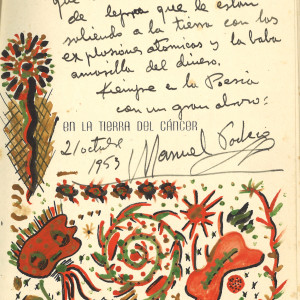 que
de lepra que le están
saliendo a la tierra con las
explosiones atómicas y la baba
amarilla del dinero.
Siempre en la Poesía
con un gran abrazo:
EN LA TIERRA DEL CÁNCER
21 octubre
1953
Manuel Pacheco